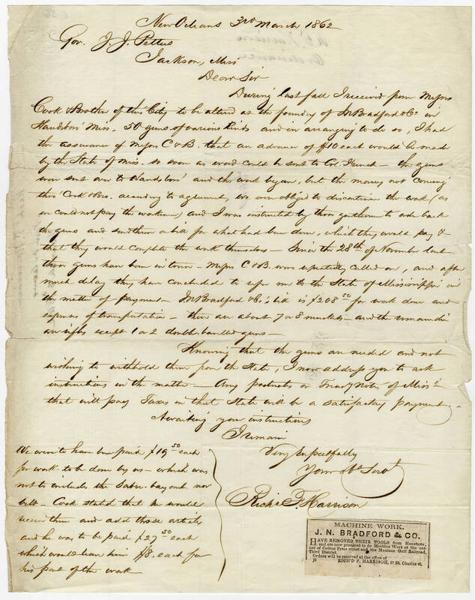 New Orleans 3rd March 1862
Gov. J. J. Pettus
Jackson, Miss
Dear Sir
During last fall I received from Messrs
Cook & Brother of this City to be altered at the foundry of J N Bradford & Co. in
Handsboro' Miss. 30 guns of various kinds and in arranging to do so, I had
the assurance of Messrs C & B. that an advance of $10 each would be made
by the State of Miss. so soon as word could be sent to the guns
were sent over to Handsboro' and the work began, but the money not coming
thro' Cook & Bro. according to agreement, we were obliged to discontinue the work (as
we could not pay the workmen) and I was instructed by these gentlemen to order back
the guns and send them a bill for what had been done, which they would pay &
that they would complete the work themselves - Since the 28th of November last
these guns have been in town - Messrs C & B. were repeatedly called on, and after
much delay they have concluded to refer me to the State of Mississippi in
the matter of payment J N Bradford & Co's. bill is $208 50 for work done and
expenses of transportation - there are about 7 or 8 muskets and the remainder
are rifles except 1 or 2 double barrelled guns -
Knowing that the guns are needed and not
wishing to withhold them from the State, I now address you to ask
instructions in the matter - Any or Treasy Note of Missi
that will pay Taxes in that State will be a satisfactory payment.
Awaiting your instructions
I remain
Very Respectfully
Your Obt Servt
F Harrison
We were to have been paid $19 50 each
for work to be done by us - which was
not to include the Sabre bayonet nor
belt - Cook stated that he would
and add those articles
and he was to be paid $27 50 each
which would leave him $8. each for
his part of the work
MACHINE WORK.
J. N. BRADFORD & CO.
HAVE REMOVED THEIR TOOLS from Handsboro,
and are now prepared to do Machine Work at the cor-
ner of Front street and the Mexican Gulf Railroad,
Third District.
Orders will be received at the office of
EDW'D F. HARRISON, St. Charles st.